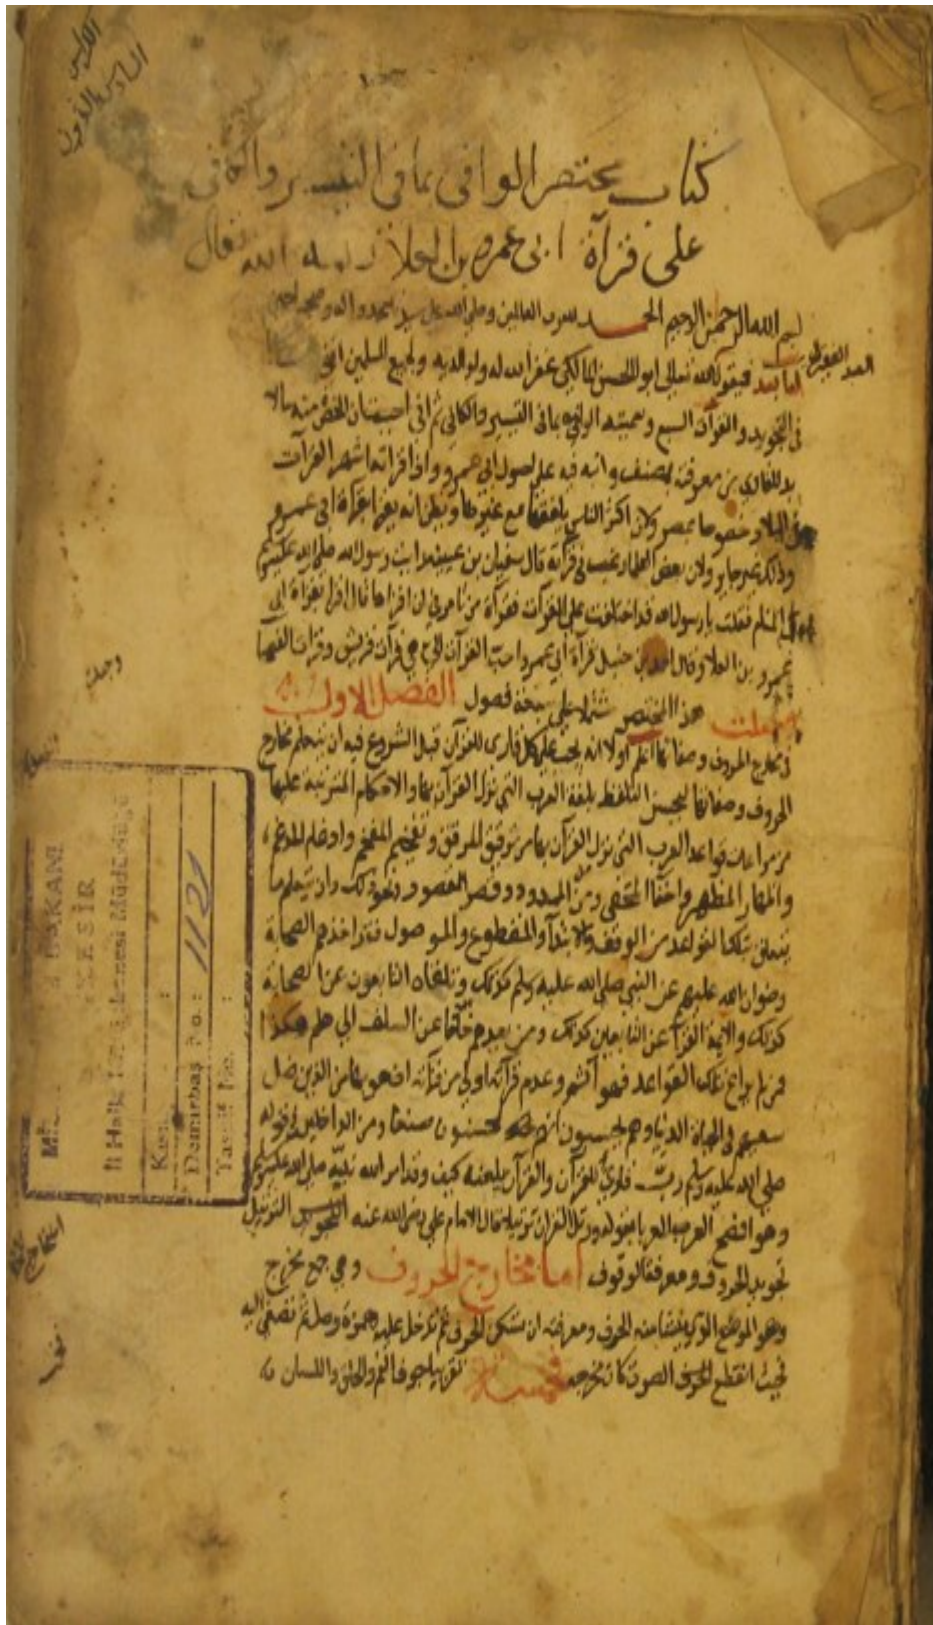 كتاب مختصر الوافي بما في التيسير والكافي
على قرآة ابي عمرو بن العلا رحمه الله تعالى
بسم الله الرحمن الرحيم الحمد لله رب العالمين وصلي الله على سيدنا محمد واله وصحبه اجمعين
العبد الفقير الى
اما بعد فيقول الله تعالى ابو الحسن المالكي غفر الله له ولوالديه ولجميع المسلمين اني
في التجويد والقرآن السبع وسميته الوافي بما في التيسير والكافي ثم اني احببت ان اختصر منه مالا
بد للقاري من معرفته وانه فيه على اصول ابي عمرو واذ اقرآته اشهر القرآت
البلاد خصوصا بمصر ولان اكثر الناس يلفقها مع غيرها ويظن انه يقرا بقرآة ابي عمرو
وذلك غير جايز ولان بعض العلما رغب في قرآته قال سفيان بن عيينه رايت رسول الله صلى الله عليه وسلم
في المنام فقلت يا رسول الله قد اختلفت علي القرآت فقرآة من تامرني ان اقرا بها قال اقرا بقراة ابي
عمرو بن العلا وقال احمد بن حنبل قرآة ابي عمرو احب القرآن الي هي قرآن قريش وقرات الفصحا
وجعلت هذا المختصر مشتملا على سبعة فصول الفصل الاول
في مخارج الحروف وصفاتها اعلم اولا انه يجب على كل قارى للقرآن قبل الشروع فيه ان يتعلم مخارج
الحروف وصفاتها ليحسن التلفظ بلغة العرب التي نزل القرآن بها والاحكام المترتبه عليها
من مراعات قواعد العرب التي نزل القرآن بها من ترقيق المرقق وتفخيم المفخم وادغام المدغم
واظهار المظهر واخفآ المخفى ومد الممدود وقصر المقصور ونحو ذلك وان يتعلم ما
يتعلق بتلك القواعد من الوقف والابتدآ والمقطوع والموصول فقد اخذهم الصحابة
رضوان الله عليهم عن النبي صلى الله عليه وسلم كذلك وتلقاه التابعون عن الصحابة
كذلك والايمة القرآ عن التابعين كذلك ومن بعدهم خلفا عن السلف الي هلم هكذا
فمن لم يراع تلك القواعد فهو آثم وعدم قرآته اولى من قرآته اذ هو بها من الذين ضل
سعيهم في الحياة الدنيا وهم يحسبون انهم يحسنون صنعا ومن الداخلين في قوله
صلى الله عليه وسلم رب قارئ للقرآن والقرآن يلعنه كيف وقد امر الله نبيه صلى الله عليه وسلم
وهو افصح العرب العربا بقوله ورتل القرآن ترتيلا قال الامام علي رضي الله عنه الترتيل
تجويد الحروف ومعرفة الوقوف اما مخارج الحروف وهي جمع مخرج
وهو الموضع الذي ينشا منه الحرف ومعرفته ان تسكن الحرف ثم تدخل عليه همزة وصل ثم تصغي اليه
فحيث انقطع الصوت كان مخرجه فخمسة تقريبا جوف الفم والحلق واللسان
BAKANI
Halk Kütüphanesi Müdürlüğü
Demirbaş No.: 1121
Tasnif No. :